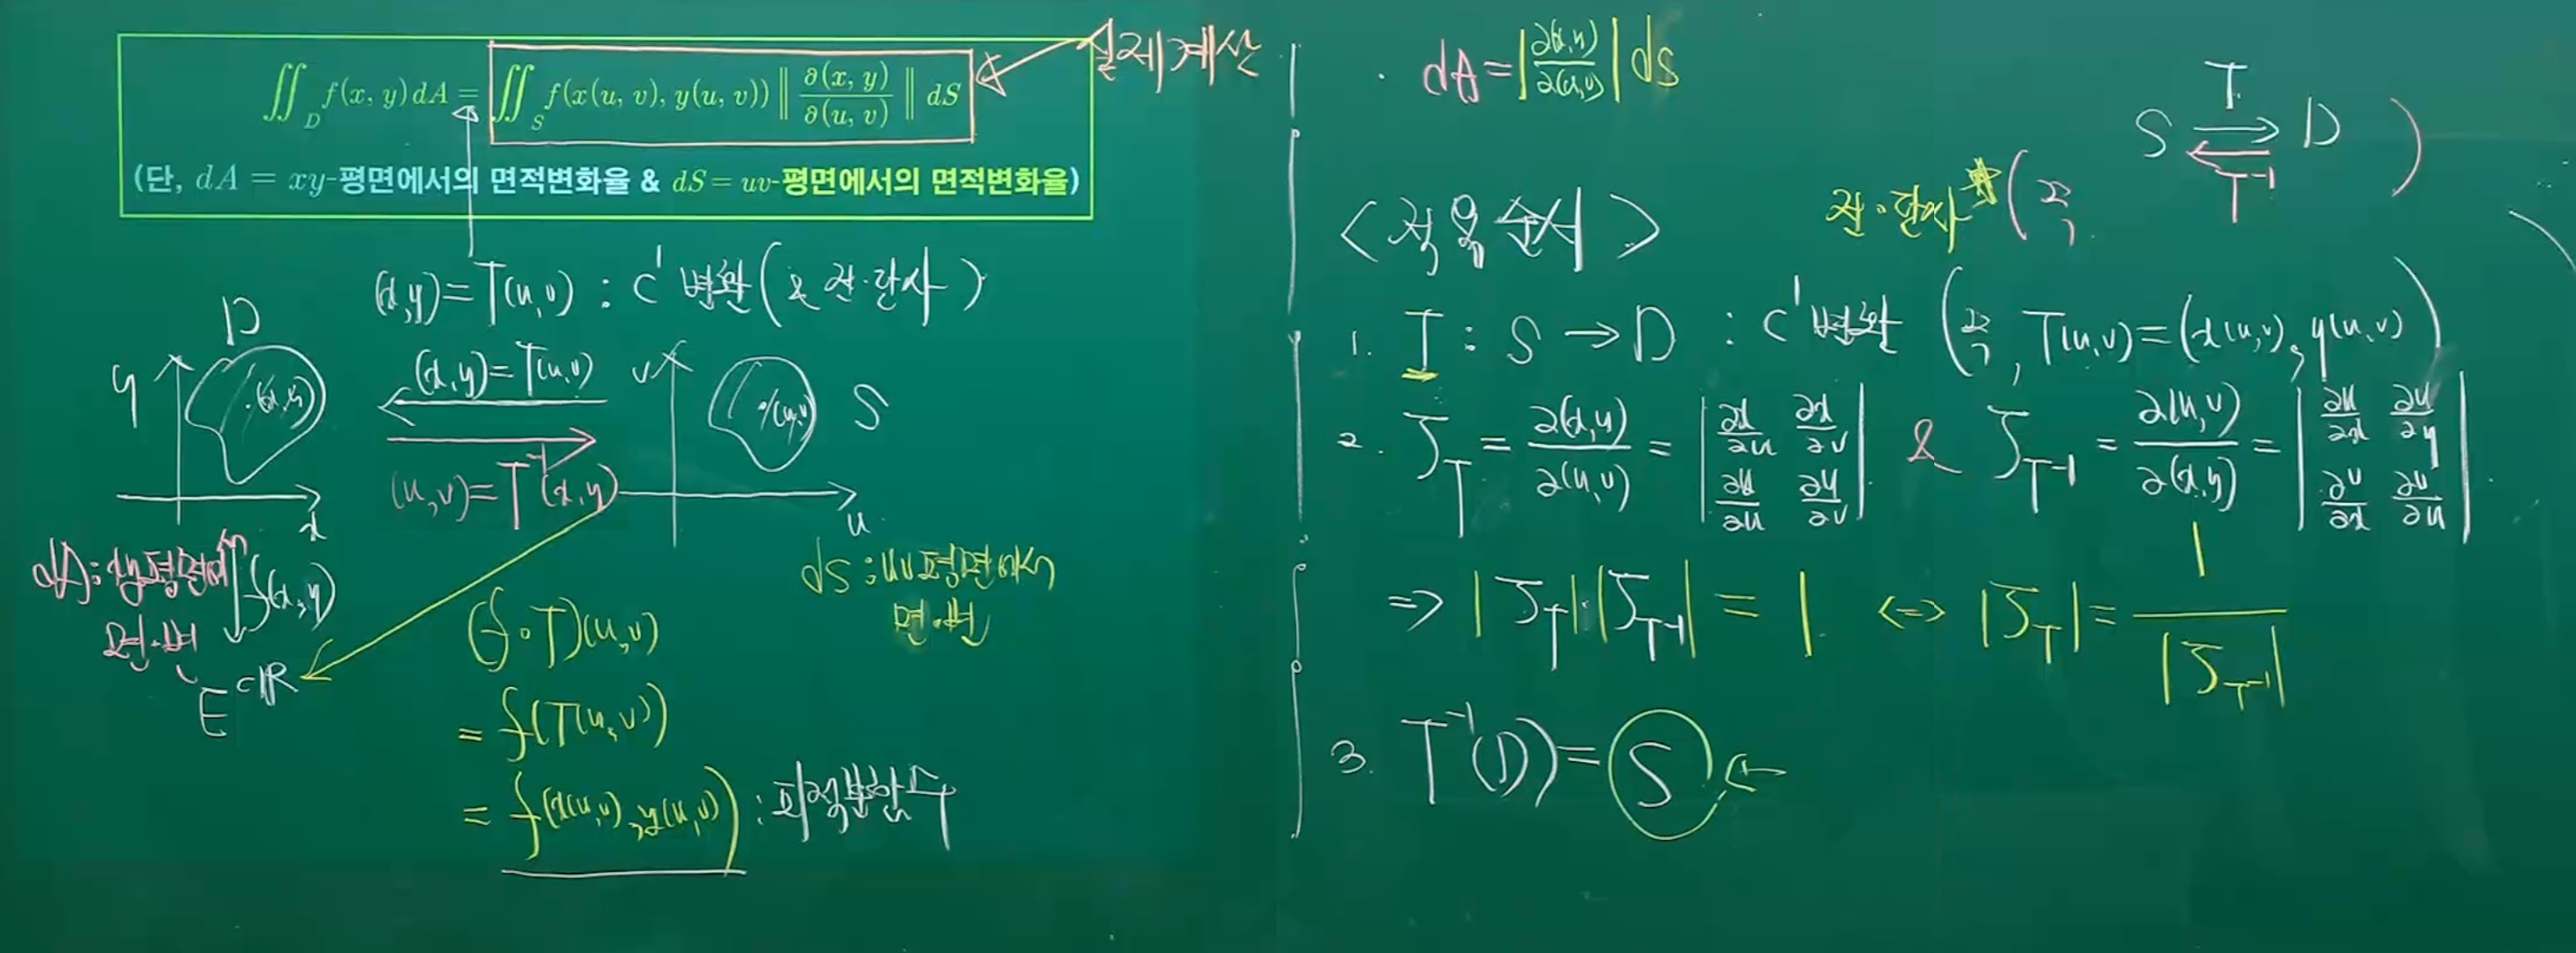 ∬_D f(x, y) dA = ∬_S f(x(u, v), y(u, v)) ‖ ∂(x, y)/∂(u, v) ‖ dS
실제계산
(단, dA = xy-평면에서의 면적변화율 & dS = uv-평면에서의 면적변화율)
(x,y)=T(u,v) : C¹ 변환 (& 전·단사)
D
y
(x,y)
x
(x,y)=T(u,v)
(u,v)=T⁻¹(x,y)
v
(u,v)
S
u
dA : xy평면에서
면·변
f(x,y)
E ⊂ ℝ
dS : uv평면에서
면·변
(f∘T)(u,v)
= f(T(u,v))
= f(x(u,v), y(u,v)) : 피적분함수
· dA = |∂(x,y)/∂(u,v)| dS
<적용순서>
전·단사 * ( S ⇄ D )
T
T⁻¹
1. T : S → D : C¹ 변환 ( , T(u,v) = (x(u,v), y(u,v)) )
2. J_T = ∂(x,y)/∂(u,v) = | ∂x/∂u ∂x/∂v ; ∂y/∂u ∂y/∂v | & J_T⁻¹ = ∂(u,v)/∂(x,y) = | ∂u/∂x ∂u/∂y ; ∂v/∂x ∂v/∂y |
⇒ |J_T| · |J_T⁻¹| = 1 ⇔ |J_T| = 1/|J_T⁻¹|
3. T⁻¹(D) = S ←